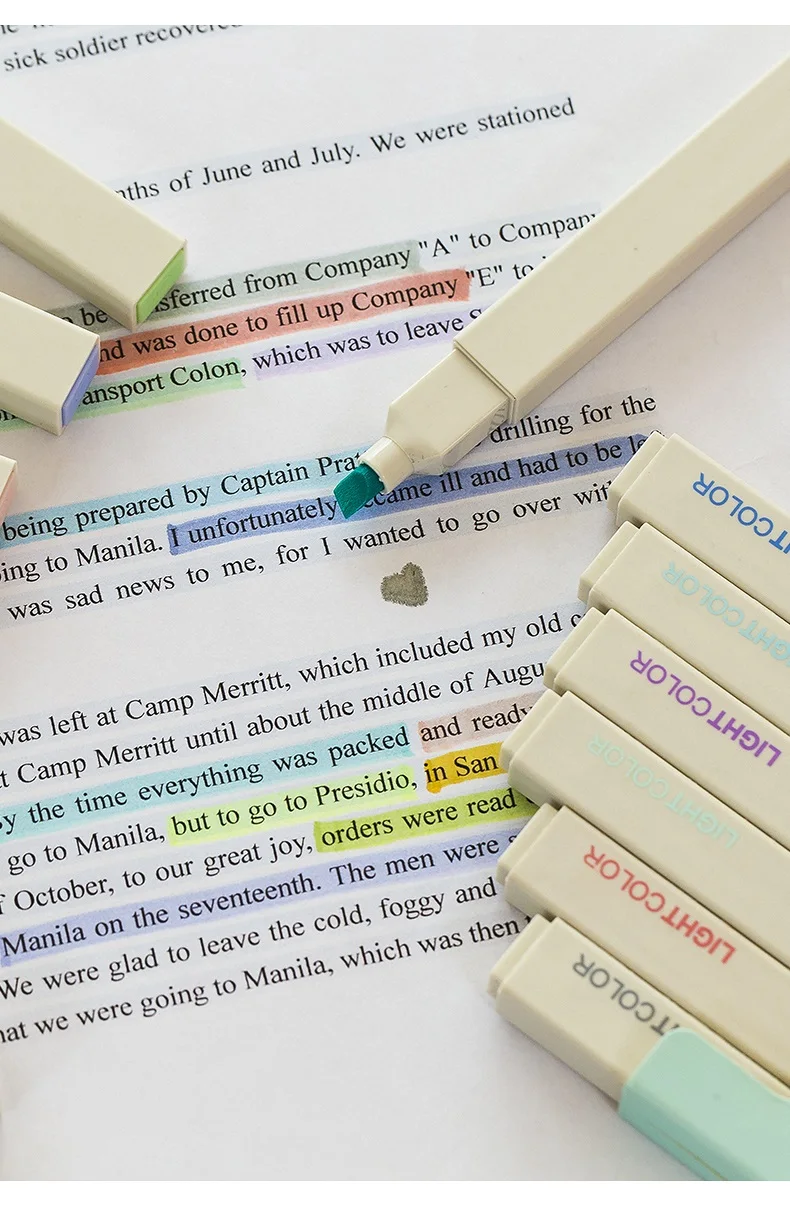 sick soldier recovered
of June and July. We were stationed
sferred from Company "A" to Company
was done to fill up Company "E" to
ansport Colon, which was to leave
being prepared by Captain drilling for the
ing to Manila. I unfortunately came ill and had to be
was sad news to me, for I wanted to go over
was left at Camp Merritt, which included my old
t Camp Merritt until about the middle of
y the time everything was packed and ready
go to Manila, but to go to Presidio, in San
f October, to our great joy, orders were read
Manila on the seventeenth. The men were
We were glad to leave the cold, foggy and
hat we were going to Manila, which was then
HTCOLOR
LIGHTCOLOR
LIGHTCOLOR
LIGHTCOLOR
LIGHTCOLOR
HTCOLOR